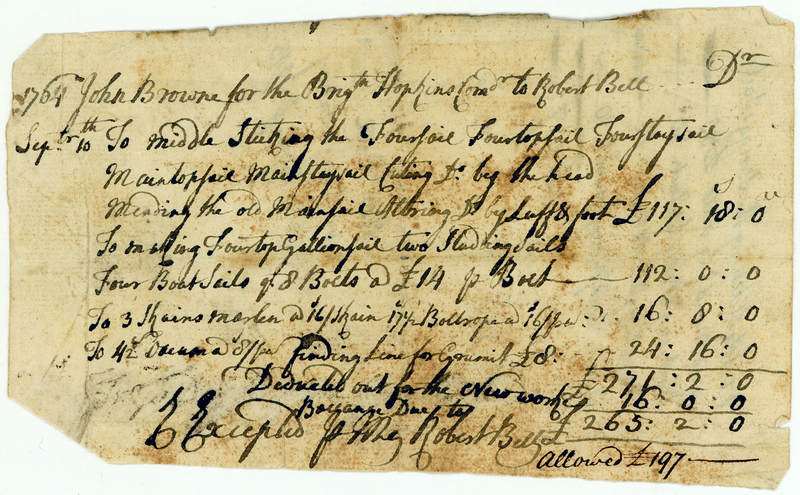 Dr
1764 John Browne for the Brigth Hopkins Comdr to Robert Bell
Septr 10th To Middle Stiching the Foursail Fourtopsail Fourstaysail
Maintopsail Mainstaysail Cuting Do by the head
Mending the old Mainsail Altring Do by Luff & foot £117: 18: 0
To making Fourtop Gallionsail two Studingsails
Four Boat Sails qt 8 Bolts a £14 p Bolt 112: 0: 0
To 3 Skains marlen a 16/ Skain Boltrope a 16: 8: 0
To Occum a 8/ finding Line for Grumit £8: 24: 16: 0
£271: 2: 0
Deducted out for the New work 16: 0: 0
Ballange Due to £265: 2: 0
Excepted p Me Robert Bell
allowed £197